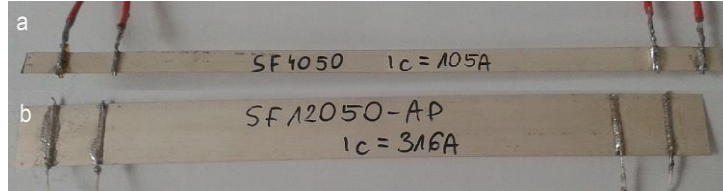 a
SF4050 Ic=105A
b
SF12050-AP
Ic=316A